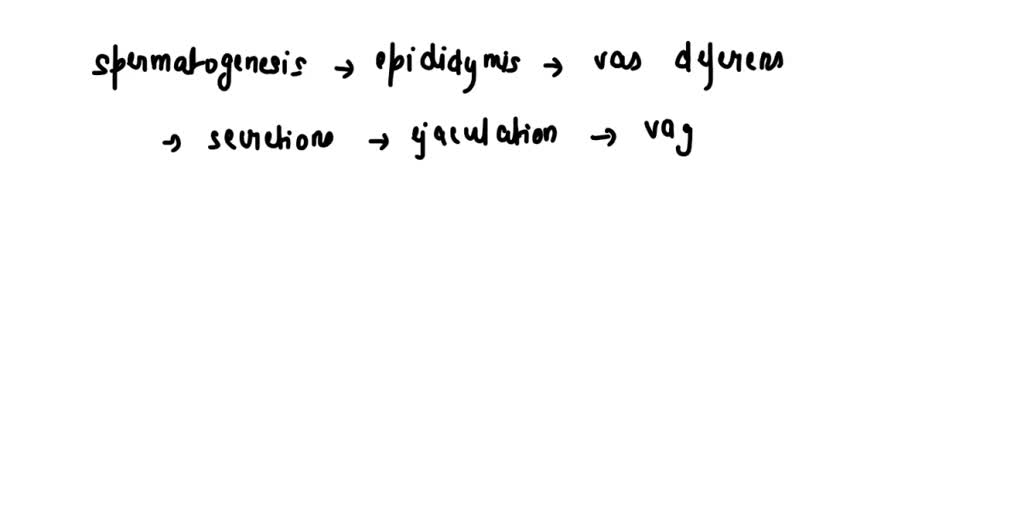 spermatogenesis → epididymis → vas deferens
→ secretions → ejaculation → vag